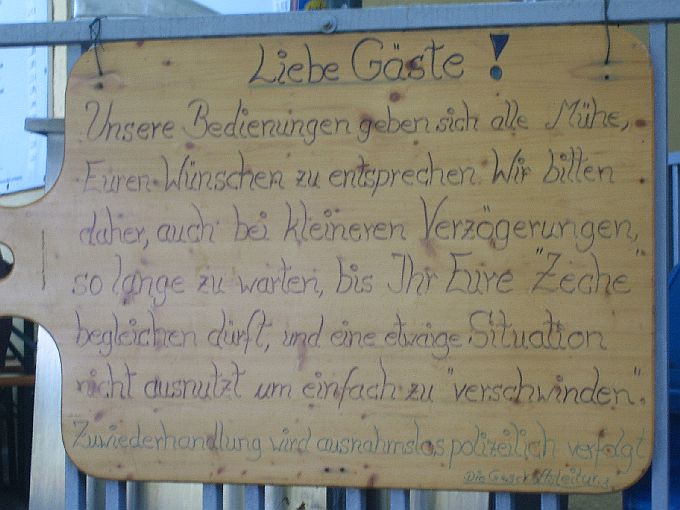 Liebe Gäste!
Unsere Bedienungen geben sich alle Mühe,
Euren Wünschen zu entsprechen. Wir bitten
daher, auch bei kleineren Verzögerungen,
so lange zu warten, bis Ihr Eure "Zeche"
begleichen dürft, und eine etwaige Situation
nicht ausnutzt um einfach zu "verschwinden".
Zuwiederhandlung wird ausnahmslos polizeilich verfolgt
Die Geschäftsleitung